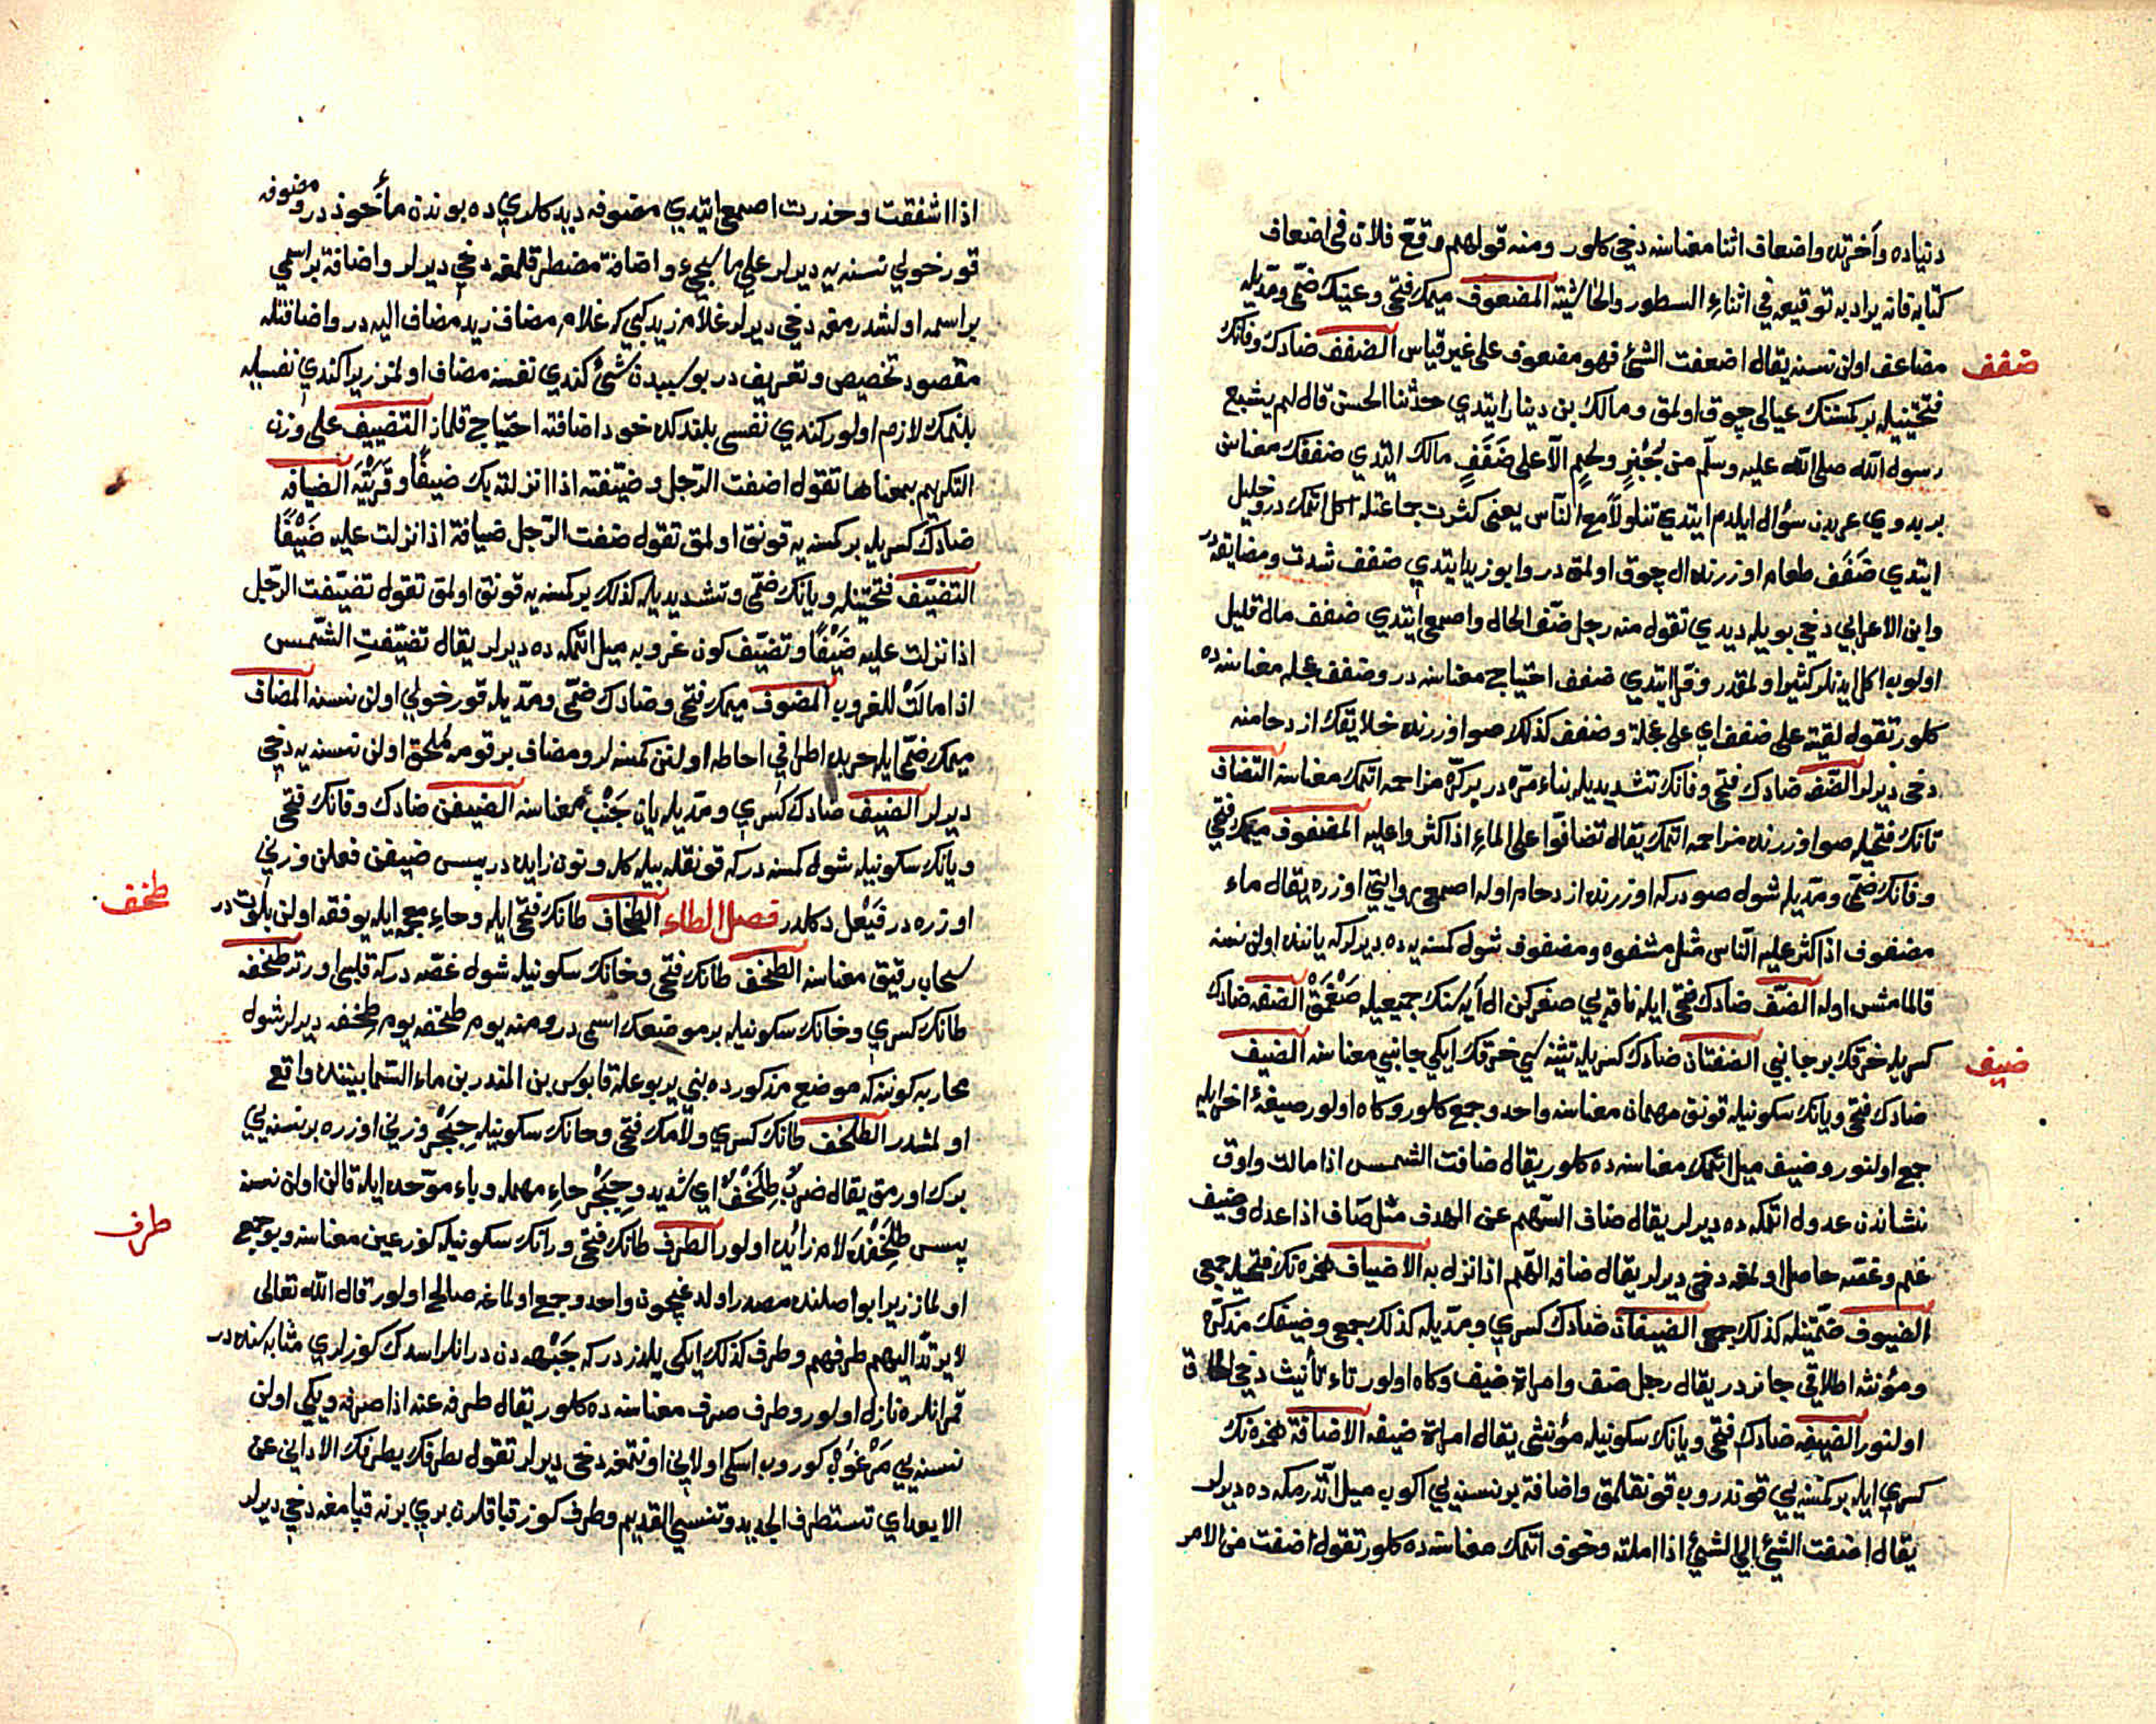 دنياده وآخرتده واضعاف اثنا معناسنه دخي كلور ومنه قولهم وقّع فلان في اضعاف
كتابه فانه يراد به توقيعه في اثناء السطور والحاشية المضعوف ميمك فتحي وعينك ضمّي ومدّيله
ضفف
مضاعف اولن نسنه يقال اضعفت الشئ فهو مضعوف على غير قياس الضفف ضادك وفانك
فتحتينيله بر كمسنك عيالي چوق اولمق ومالك بن دينار ايتدي حدّثنا الحسن قال لم يشبع
رسول الله صلى الله عليه وسلّم من خُبْزٍ ولحمٍ الاّ على ضَفَفٍ مالك ايتدي ضففك معناسن
بر بدوي عربدن سؤال ايلدم ايتدي تناولاً مع الناس يعني كثرت جماعتله اكل اتمكدر وخليل
ايتدي ضَفَف طعام اوزرنده ال چوق اولمقدر وابو زيد ايتدي ضفف شدت ومضايقه در
وابن الاعرابي دخي بويله ديدي تقول منه رجل ضفّ الحال واصمعي ايتدي ضفف مال قليل
اولوب اكل ايدنلر كثير اولمقدر وفرّا ايتدي ضفف احتياج معناسنه در وضفف عجله معناسنه ده
كلور تقول لقيته على ضفف اي على عجلة وضفف كذلك صو اوزرنده خلايقك ازدحامنه
دخي ديرلر الضّفه ضادك فتحي وفانك تشديديله بناء مرّه در بر كرّه مزاحمه اتمك معناسنه التضافّ
تانك فتحيله صو اوزرنده مزاحمه اتمك يقال تضافّوا على الماء اذا كثروا عليه المضفوف ميمك فتحي
وفانك ضمّي ومدّيله شول صودركه اوزرنده ازدحام اوله اصمعي روايتي اوزره يقال ماء
مضفوف اذا كثر عليه الناس مثل مشفوه ومضفوف شول كمسنه يه ده ديرلركه ياننده اولن نسنه
قالمامش اوله الضفّ ضادك فتحي ايله ناقه يي صغركن ال آيه سنك جميعيله صَغْمَقْ الضفه ضادك
ضيف
كسريله خرقك بر جانبي الضفتان ضادك كسريله تثنيه سي خرقك ايكي جانبي معناسنه الضيف
ضادك فتحي ويانك سكونيله قونق مهمان معناسنه واحد وجمع كلور وكاه اولور صيغهٔ اخر ايله
جمع اولنور وضيف ميل اتمك معناسنه ده كلور يقال ضافت الشمس اذا مالت واوق
نشاندن عدول اتمكه ده ديرلر يقال ضاف السّهم عن الهدف مثل صَاف اذا عدل وضيف
غم وغصّه حاصل اولمغه دخي ديرلر يقال ضافه الهّم اذا نزل به الاضياف همزه نك فتحيله جمعي
الضيوف ضمّتينله كذلك جمعي الضيفان ضادك كسري ومدّيله كذلك جمعي وضيفك مذكّره
ومؤنثه اطلاقي جائزدر يقال رجل ضيف وامراة ضيف وكاه اولور تاء تأنيث دخي الحاق
اولنور الضيفه ضادك فتحي ويانك سكونيله مؤنثي يقال امراة ضيفه الاضافة همزه نك
كسري ايله بر كمسنه يي قوندروب قونقلمق واضافة بر نسنه يي اكوب ميل اتّدرمكه ده ديرلر
يقال اضفت الشئ الى الشئ اذا املته وخوف اتمك معناسنه ده كلور تقول اضفت من الامر
اذا اشفقت وحذرت اصمعي ايتدي مضوفه ديدكلري ده بوندن مأخوذدر ومضوفه
قورخولي نسنه يه ديرلر على ما يجيء واضافة مضطر قلمغه دخي ديرلر واضافة بر اسمي
بر اسمه اولشدرمغه دخي ديرلر غلام زيد كبي كه غلام مضاف زيد مضاف اليه در واضافتله
مقصود تخصيص وتعريفدر بو سببدن شئ كندي نفسنه مضاف اولمز زيرا كندي نفسيله
بلنمك لازم اولور كندي نفسى بلندكدن خود اضافته احتياج قلماز التضييف على وزن
التكريم بمعناها تقول اضفت الرّجل وضيّفته اذا انزلته بك ضيفًا وقَرَيْتَه الضيافه
ضادك كسريله بر كمسنه يه قونق اولمق تقول ضفت الرّجل ضيافة اذا نزلت عليه ضَيْفًا
التضيّف فتحتينله ويانك ضمّي وتشديديله كذلك بر كمسنه يه قونق اولمق تقول تضيّفت الرّجل
اذا نزلت عليه ضَيْفًا وتضيّف كون غروبه ميل اتمكه ده ديرلر يقال تضيّفتِ الشّمس
اذا مالَتْ للغروب المضوف ميمك فتحي وضادك ضمّي ومدّيله قورخولي اولن نسنه المضاف
ميمك ضمّي ايله حربده اطرافي احاطه اولنن كمسنه لر ومضاف بر قومه مُلحق اولن نسنه يه دخي
ديرلر الضيف ضادك كسري ومدّيله يان جَنْب معناسنه الضيفن ضادك وفانك فتحي
ويانك سكونيله شول كمسنه دركه قونقله بيله كله ونون زايده در پس ضيفن فعلن وزني
طخف
اوزره در فَيْعل دكلدر فصل الطاء الطخاف طانك فتحي ايله وحاء معجمه ايله يوفقه اولن بلوت در
سحاب رقيق معناسنه الطخف طانك فتحي وخانك سكونيله شول غصّه دركه قلبى اورتر طخفه
طانك كسري وخانك سكونيله بر موضعك اسمى در ومنه يوم طخفه يوم طِخفه ديرلر شول
محاربه كوننه كه موضع مذكورده بني يربوعله قابوس بن المنذر بن ماء السّما بيننده واقع
اولمشدر الطلخف طانك كسري ولامك فتحي وخانك سكونيله حِبَجْر وزني اوزره بر نسنه يي
برك اورمق يقال ضربٌ طِلَخْفٌ اي شديد وحِبَجْر حاء مهمله وباء موّحده ايله قالن اولن نسنه
طرف
پس طِلَخْفدَه لام زائده اولور الطرف طانك فتحي ورانك سكونيله كوز عين معناسنه وبو جمع
اولماز زيرا بو اصلنده مصدر اولدغيچون واحد وجمع اولماغه صالح اولور قال الله تعالى
لا يرتدّ اليهم طرفهم وطرف كذلك ايكي يلدزدركه جَبْهه دن درانلر اسدك كوزلري مثابه سنده در
قمر انلره نازل اولور وطرف صرف معناسنه ده كلور يقال طرفه عنه اذا صرفه ويكي اولن
نسنه يي مَرْغُوب كوروب اسكي اولاني اونتمغه دخي ديرلر تقول يطرفك يطرفك الادانى عن
الابعد اي تستطرف الجديد وتنسي القديم وطرف كوز قپاقلرن بري برنه قپامغه دخي ديرلر